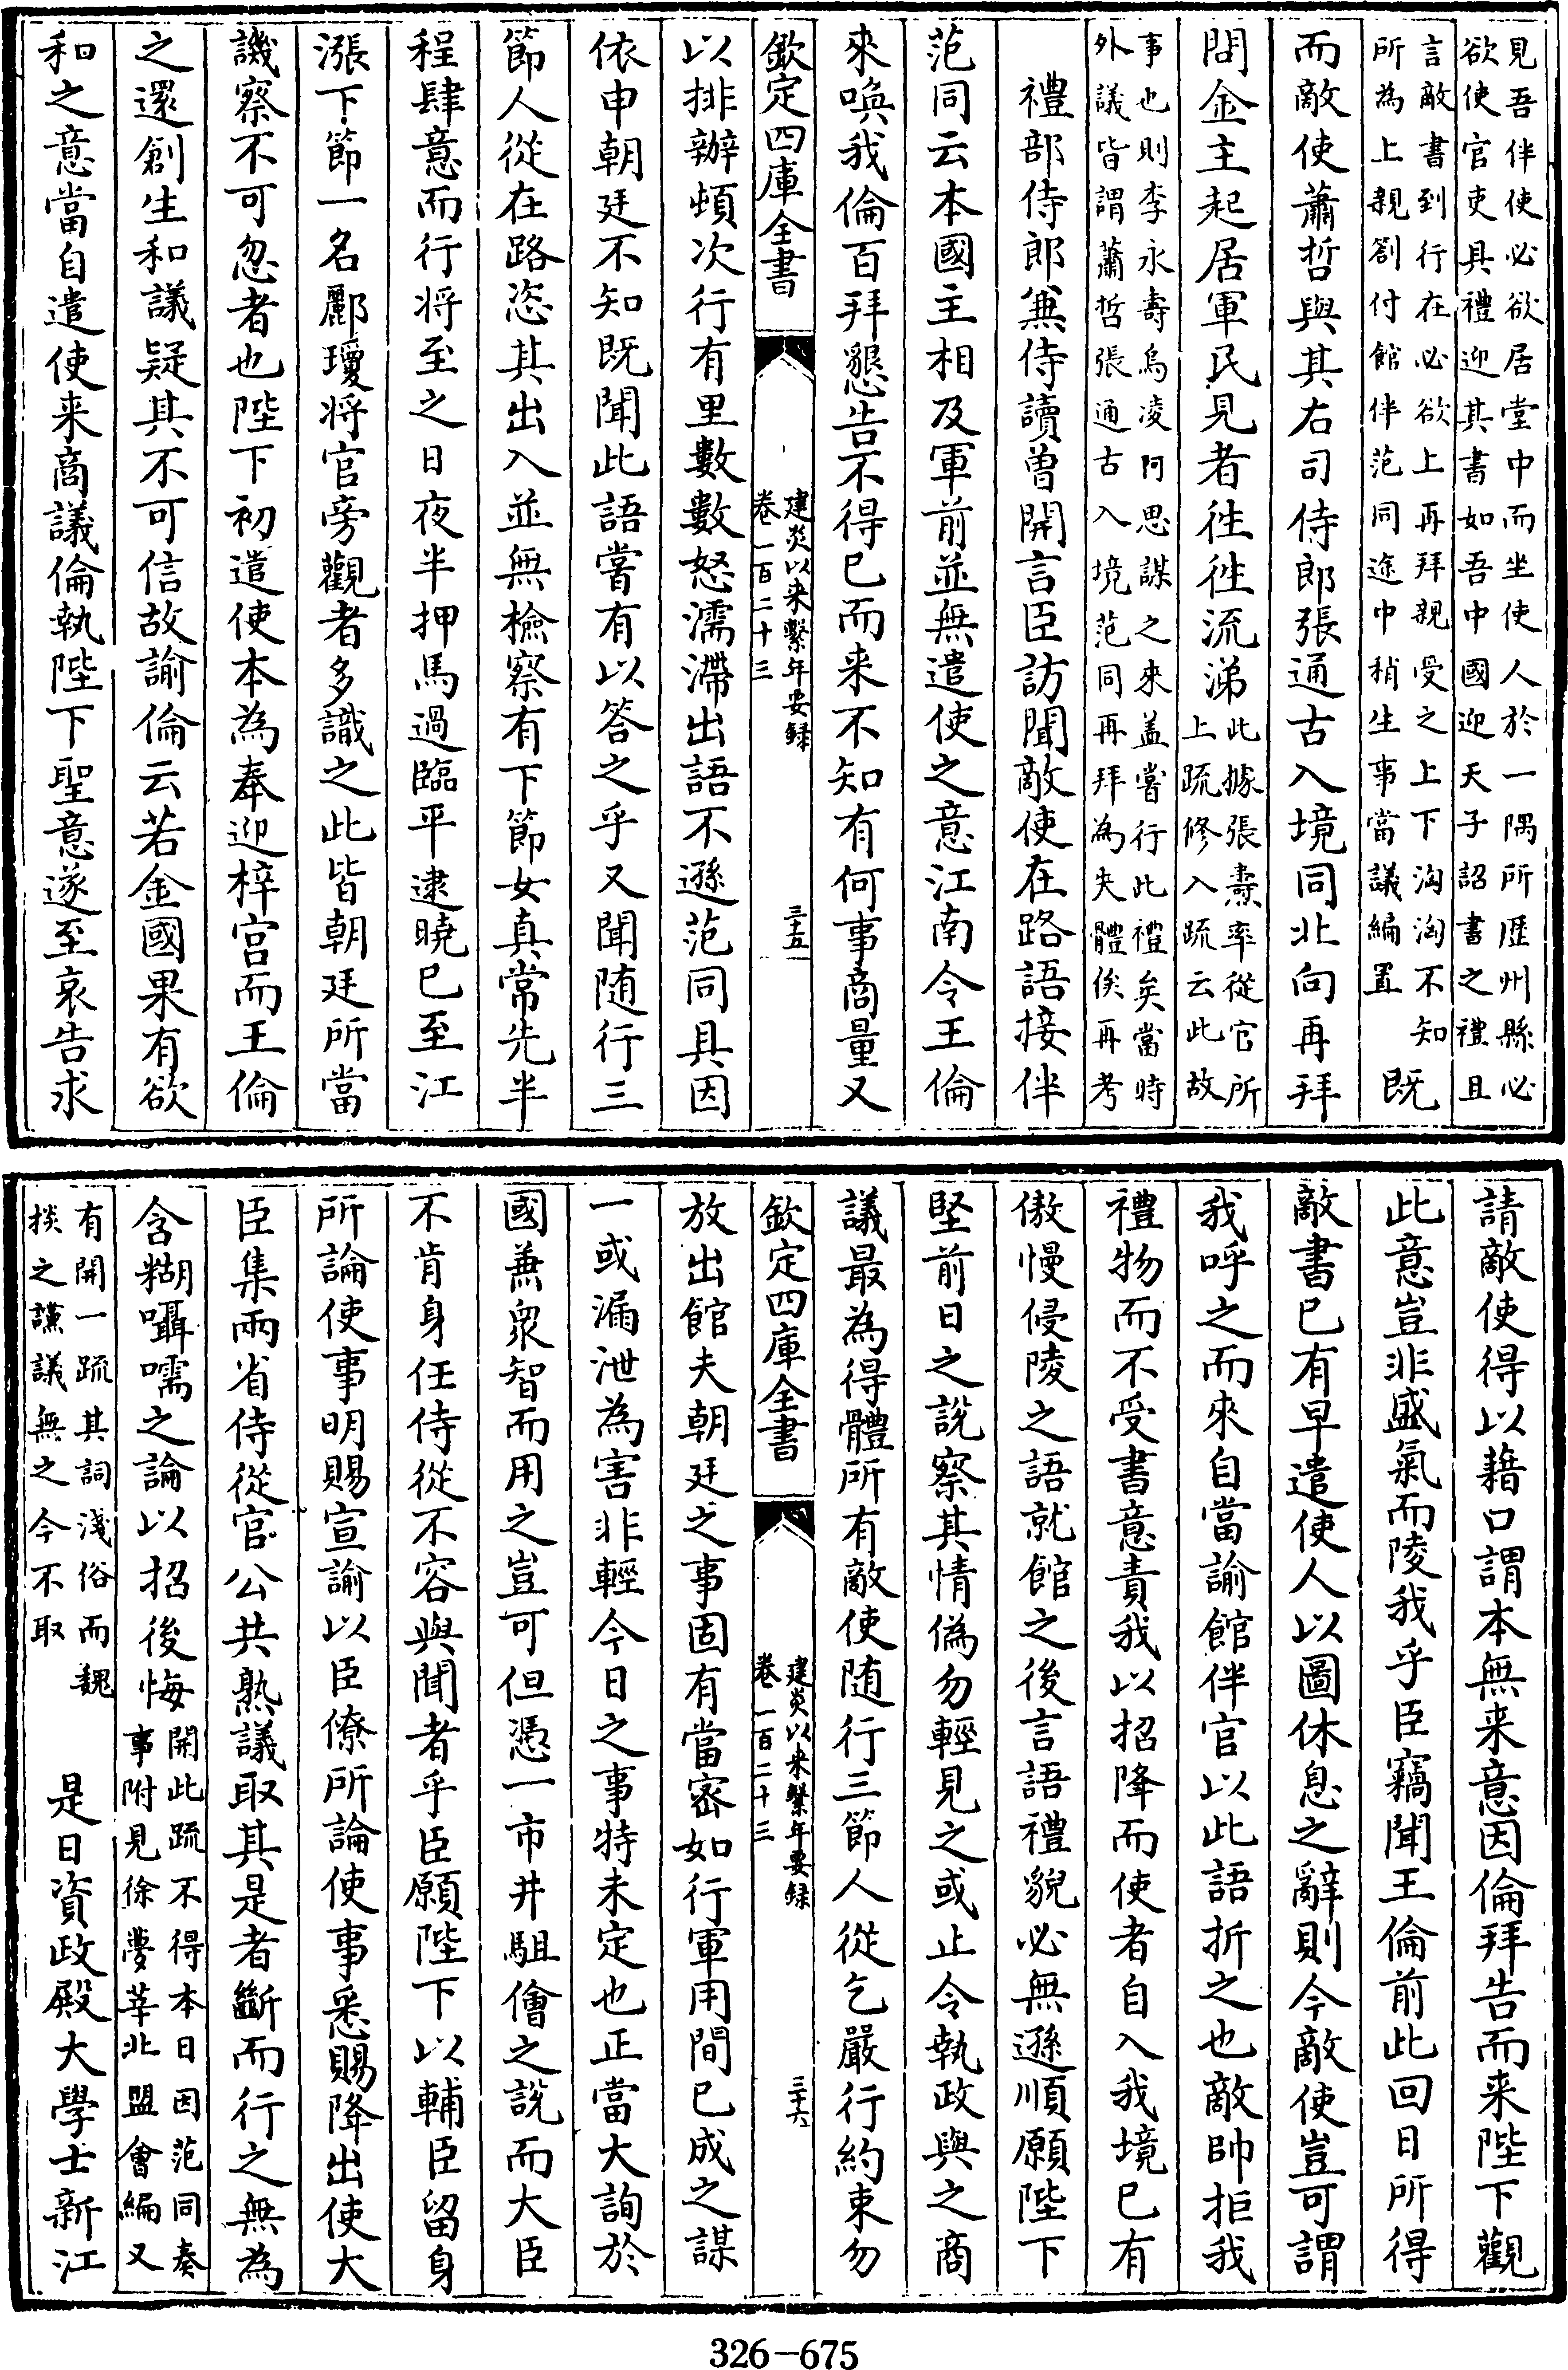 見吾伴使必欲居堂中而坐使人於一隅所歴州縣必
欲使官吏具禮迎其書如吾中國迎天子詔書之禮且
言敵書到行在必欲上再拜親受之上下洶洶不知
所為上親劄付館伴范同途中稍生事當議編置
既
而敵使蕭哲與其右司侍郎張通古入境同北向再拜
問金主起居軍民見者徃徃流涕
此據張燾率從官所
上疏修入疏云此故
事也則李永壽烏凌阿思謀之來盖嘗行此禮矣當時
外議皆謂蕭哲張通古入境范同再拜為失體俟再考
禮部侍郎兼侍讀曾開言臣訪聞敵使在路語接伴
范同云本國主相及軍前並無遣使之意江南令王倫
來喚我倫百拜懇告不得已而来不知有何事商量又
欽定四庫全書
建炎以来繫年要録
卷一百二十三
三十五
以排辦頓次行有里數數怒濡滯出語不遜范同具因
依申朝廷不知既聞此語嘗有以答之乎又聞随行三
節人從在路恣其出入並無檢察有下節女真常先半
程肆意而行将至之日夜半押馬過臨平逮曉已至江
漲下節一名酈瓊将官旁觀者多識之此皆朝廷所當
譏察不可忽者也陛下初遣使本為奉迎梓宫而王倫
之還創生和議疑其不可信故諭倫云若金國果有欲
和之意當自遣使来商議倫執陛下聖意遂至哀告求
請敵使得以藉口謂本無来意因倫拜告而来陛下觀
此意豈非盛氣而陵我乎臣竊聞王倫前此回日所得
敵書已有早遣使人以圖休息之辭則今敵使豈可謂
我呼之而來自當諭館伴官以此語折之也敵帥拒我
禮物而不受書意責我以招降而使者自入我境已有
傲慢侵陵之語就館之後言語禮貌必無遜順願陛下
堅前日之說察其情偽勿輕見之或止令執政與之商
議最為得體所有敵使随行三節人從乞嚴行約束勿
欽定四庫全書
建炎以来繫年要録
卷一百二十三
三十六
放出館夫朝廷之事固有當宻如行軍用間已成之謀
一或漏泄為害非輕今日之事特未定也正當大詢於
國兼衆智而用之豈可但憑一市井駔儈之說而大臣
不肯身任侍從不容與聞者乎臣願陛下以輔臣留身
所論使事明賜宣諭以臣僚所論使事悉賜降出使大
臣集兩省侍從官公共熟議取其是者斷而行之無為
含糊囁嚅之論以招後悔
開此疏不得本日因范同奏
事附見徐夢莘北盟會編又
有開一疏其詞淺俗而魏
掞之讜議無之今不取
是日資政殿大學士新江
326-675